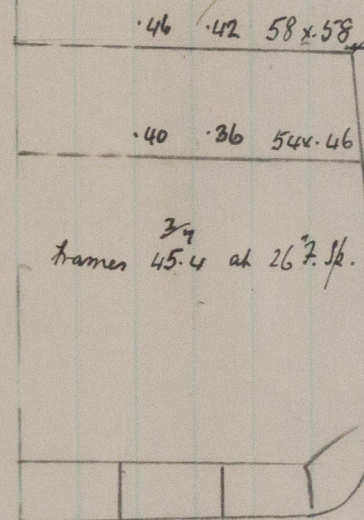 .46 .42 58 x .58
.40 .36 54 x .46
3/4
frames 45.4 at 26" F. Sp.